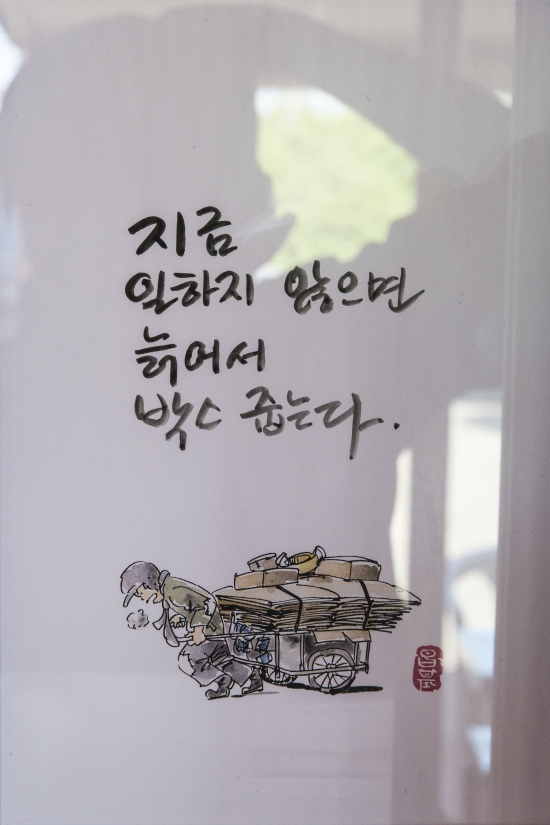 지금
일하지 않으면
늙어서
박스 줍는다.